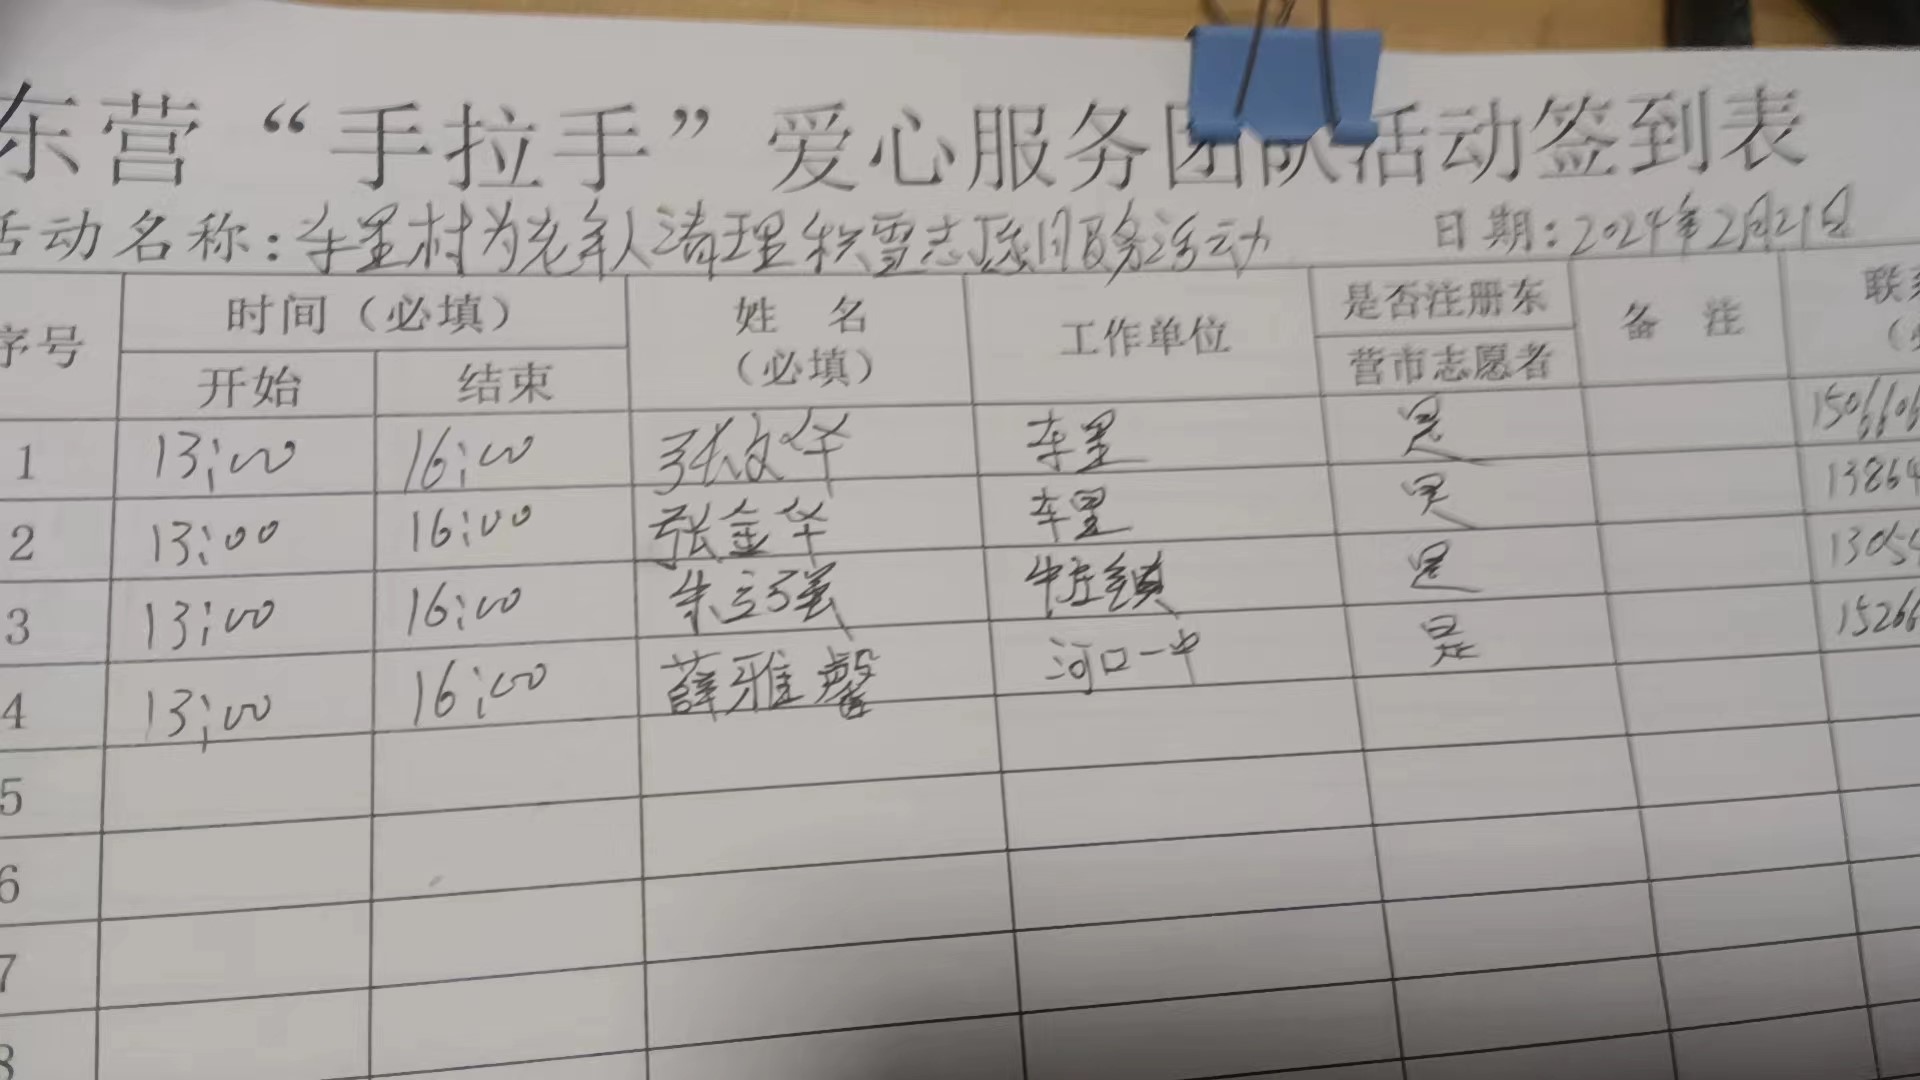 东营“手拉手”爱心服务团队活动签到表
活动名称:车里村为老年人清理积雪志愿服务活动 日期:2024年2月21日
序号 时间(必填) 姓 名 (必填) 工作单位 是否注册东 营市志愿者 备 注 联系
开始 结束
1 13:00 16:00 张文华 车里 是 150660
2 13:00 16:00 张金华 车里 是 13864
3 13:00 16:00 朱立强 牛庄镇 是 13054
4 13:00 16:00 薛雅馨 河口一中 是 15266
5
6
7
8